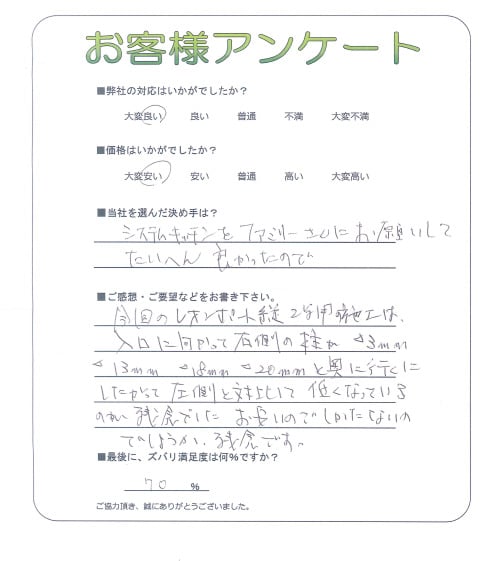 お客様アンケート
■弊社の対応はいかがでしたか？
大変良い 良い 普通 不満 大変不満
■価格はいかがでしたか？
大変安い 安い 普通 高い 大変高い
■当社を選んだ決め手は？
システムキッチンを ファミリーさんにお願いして
たいへん 良かったので
■ご感想・ご要望などをお書き下さい。
今回のレオンポート縦2台用の施工は、
入口に向かって右側の柱が △3mm
△13mm △18mm △20mmと奥に行くに
したがって 左側と対比して 低くなっている
のが残念でした お安いのでしかたないの
でしょうか、残念です。
■最後に、ズバリ満足度は何％ですか？
70 ％
ご協力頂き、誠にありがとうございました。